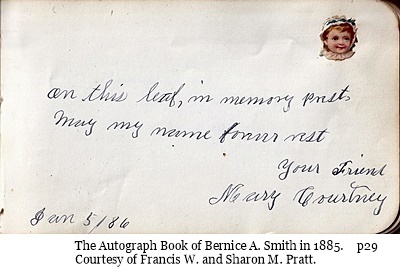 on this leaf, in memory prest
May my name forever rest
Your Friend
Courtney
Jan 5/86
The Autograph Book of Bernice A. Smith in 1885. p29
Courtesy of Francis W. and Sharon M. Pratt.